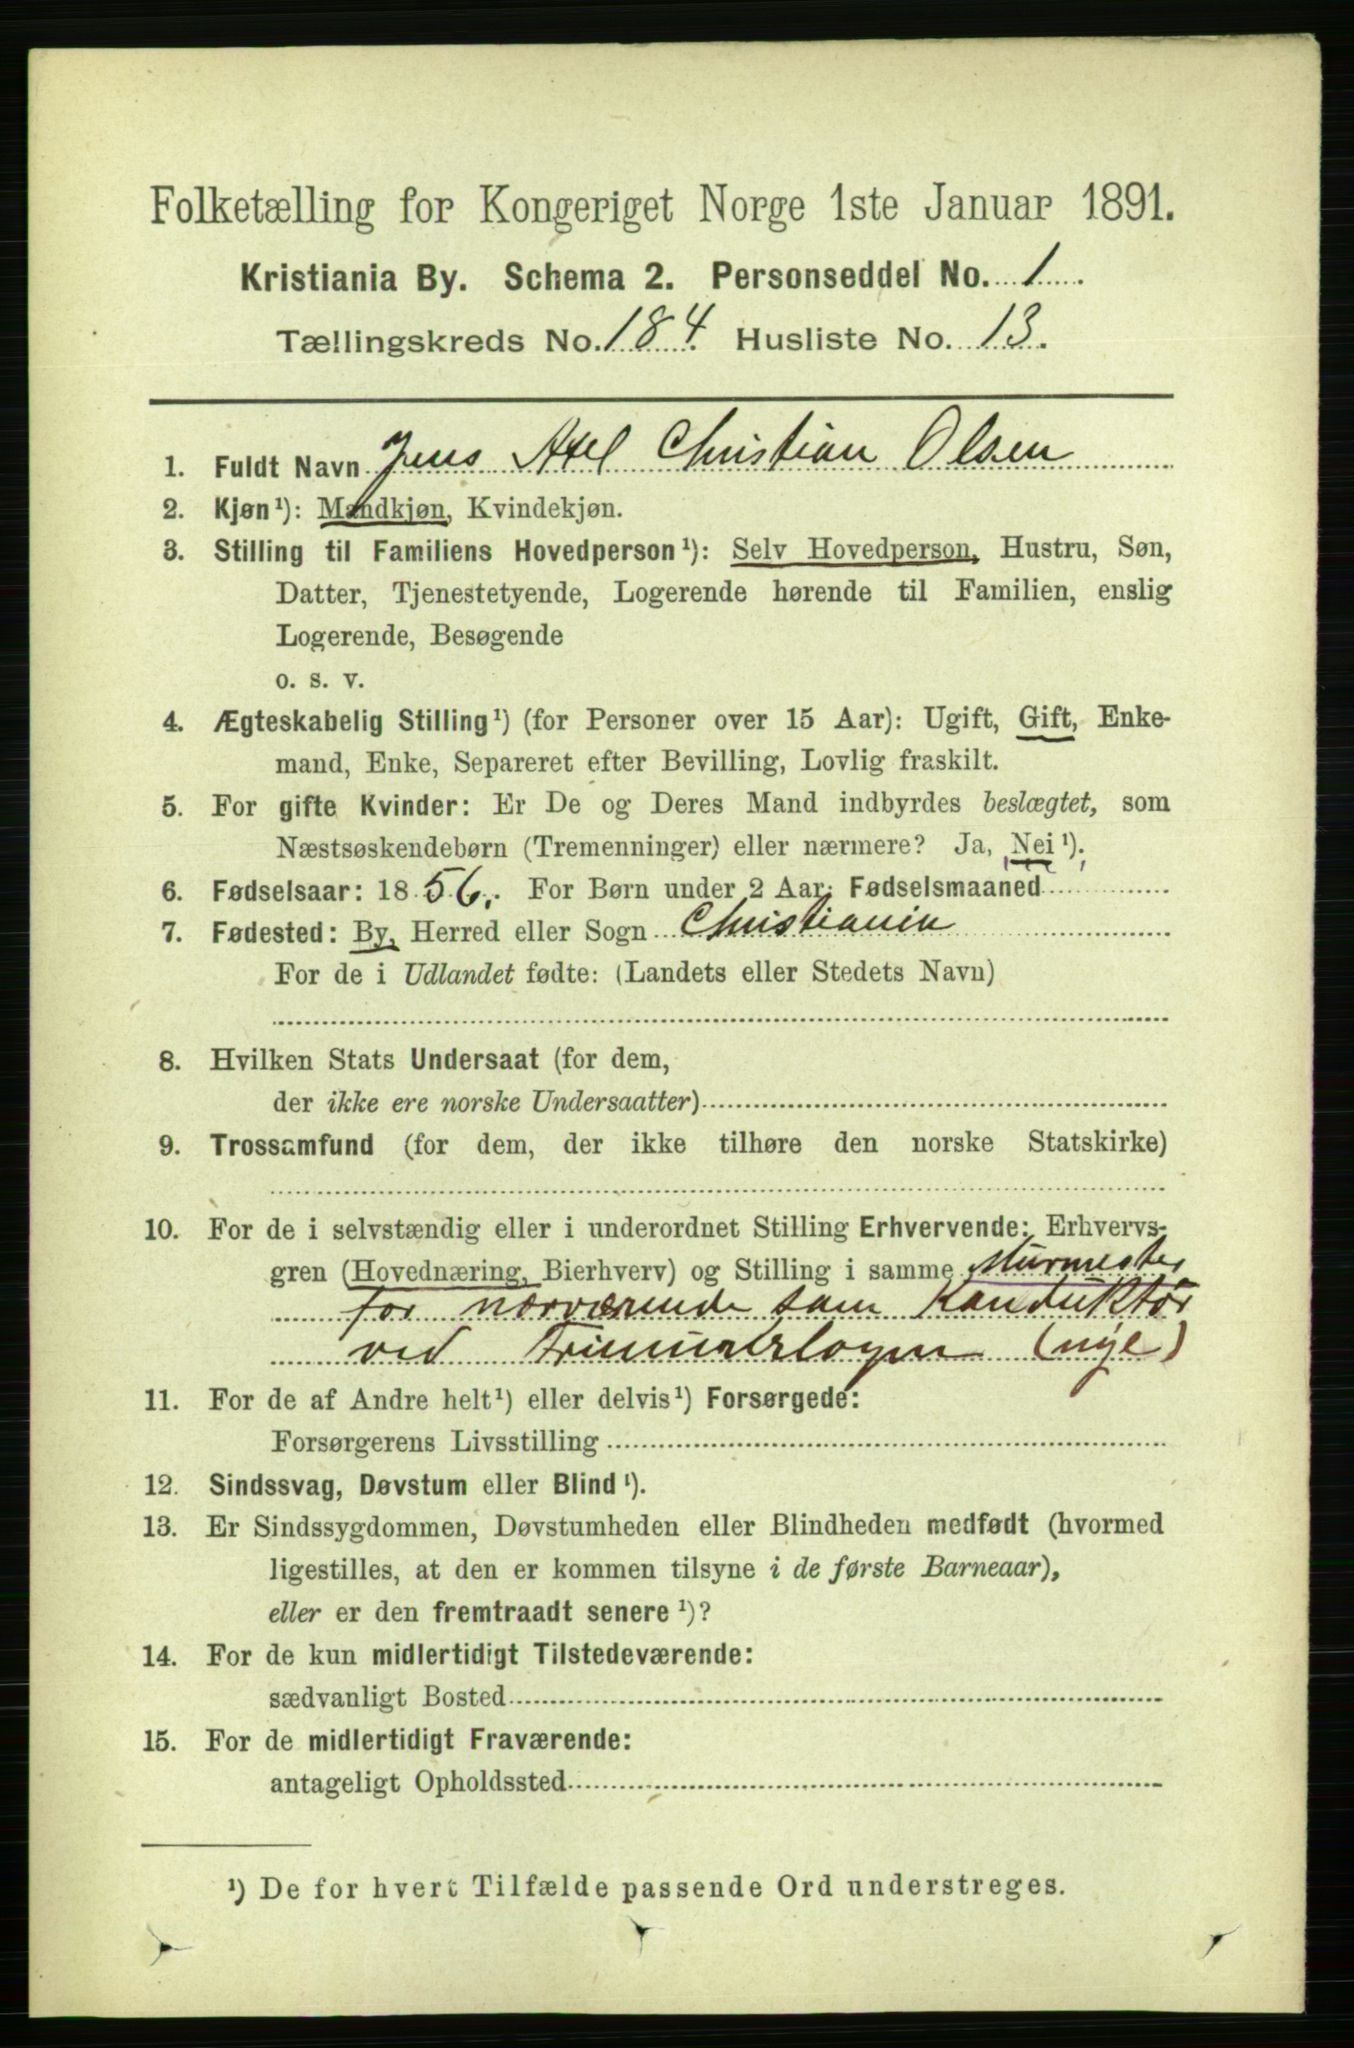 Folketælling for Kongeriget Norge 1ste Januar 1891.
Kristiania By. Schema 2. Personseddel No. 1.
Tællingskreds No. 184. Husliste No. 13.
1. Fuldt Navn Jens Axel Christian Olsen
2. Kjøn¹): Mandkjøn, Kvindekjøn.
3. Stilling til Familiens Hovedperson¹): Selv Hovedperson, Hustru, Søn,
Datter, Tjenestetyende, Logerende hørende til Familien, enslig
Logerende, Besøgende
o. s. v.
4. Ægteskabelig Stilling¹) (for Personer over 15 Aar): Ugift, Gift, Enke-
mand, Enke, Separeret efter Bevilling, Lovlig fraskilt.
5. For gifte Kvinder: Er De og Deres Mand indbyrdes beslægtet, som
Næstsøskendebørn (Tremenninger) eller nærmere? Ja, Nei¹).
6. Fødselsaar: 1856. For Børn under 2 Aar: Fødselsmaaned
7. Fødested: By, Herred eller Sogn Christiania
For de i Udlandet fødte: (Landets eller Stedets Navn)
8. Hvilken Stats Undersaat (for dem,
der ikke ere norske Undersaatter)
9. Trossamfund (for dem, der ikke tilhøre den norske Statskirke)
10. For de i selvstændig eller i underordnet Stilling Erhvervende: Erhvervs-
gren (Hovednæring, Bierhverv) og Stilling i samme Murmester
for nærværende som Konduktør
ved Frimurerlogen (nye)
11. For de af Andre helt¹) eller delvis¹) Forsørgede:
Forsørgerens Livsstilling
12. Sindssvag, Døvstum eller Blind¹).
13. Er Sindssygdommen, Døvstumheden eller Blindheden medfødt (hvormed
ligestilles, at den er kommen tilsyne i de første Barneaar),
eller er den fremtraadt senere¹)?
14. For de kun midlertidigt Tilstedeværende:
sædvanligt Bosted
15. For de midlertidigt Fraværende:
antageligt Opholdssted
¹) De for hvert Tilfælde passende Ord understreges.